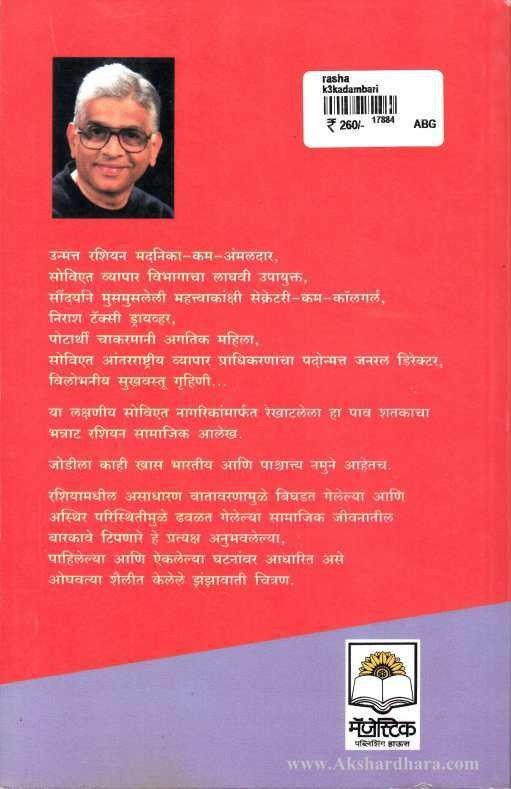 rasha
k3kadambari
₹ 260/- 17884 ABG
उन्मत्त रशियन मदनिका-कम-अंमलदार,
सोविएत व्यापार विभागाचा लाघवी उपायुक्त,
सौंदर्याने मुसमुसलेली महत्त्वाकांक्षी सेक्रेटरी-कम-कॉलगर्ल,
निराश टॅक्सी ड्रायव्हर,
पोटार्थी चाकरमानी अगतिक महिला,
सोविएत आंतरराष्ट्रीय व्यापार प्राधिकरणाचा पदोन्मत्त जनरल डिरेक्टर,
विलोभनीय सुखवस्तू गृहिणी...
या लक्षणीय सोविएत नागरिकांमार्फत रेखाटलेला हा पाव शतकाचा
भन्नाट रशियन सामाजिक आलेख.
जोडीला काही खास भारतीय आणि पाश्चात्त्य नमुने आहेतच.
रशियामधील असाधारण वातावरणामुळे बिघडत गेलेल्या आणि
अस्थिर परिस्थितीमुळे ढवळत गेलेल्या सामाजिक जीवनातील
बारकावे टिपणारे हे प्रत्यक्ष अनुभवलेल्या,
पाहिलेल्या आणि ऐकलेल्या घटनांवर आधारित असे
ओघवत्या शैलीत केलेले झंझावाती चित्रण.
मॅजेस्टिक
पब्लिशिंग हाऊस
www.Akshardhara.com